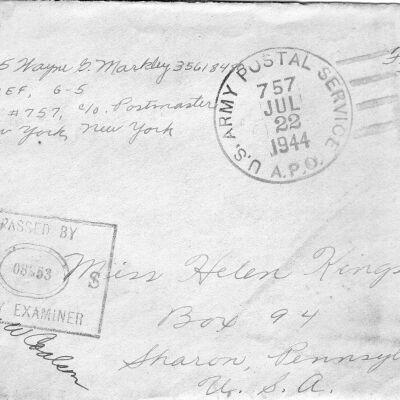 5 Wayne G. Markley 356184
EF, G-5
# 757, c/o Postmaster
w York, New York
U.S. ARMY POSTAL SERVICE
757
JUL
22
1944
A.P.O.
PASSED BY
S
EXAMINER
Miss Helen Kings
Box 94
Sharon, Pennsyl
U. S. A.